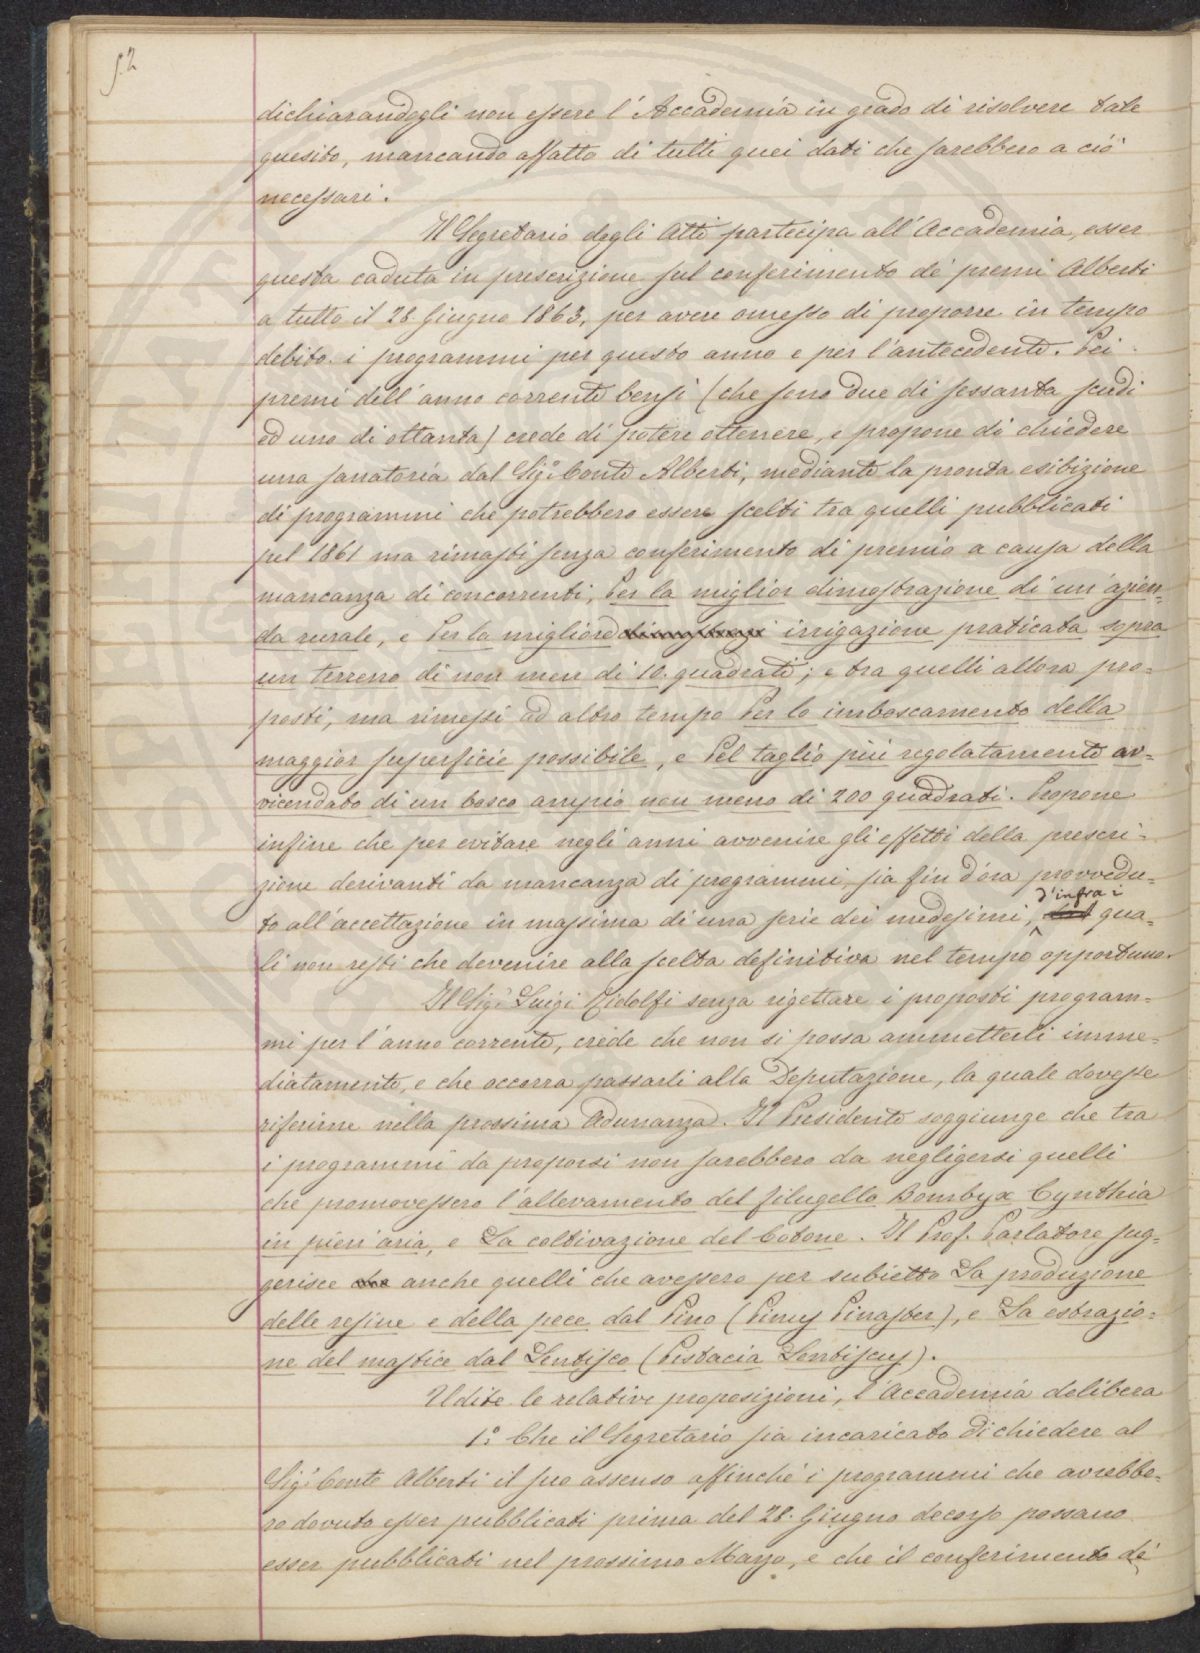 52
dichiarandogli non essere l'Accademia in grado di risolvere tale
quesito, mancando affatto di tutti quei dati che sarebbero a ciò
necessari.
Il Segretario degli Atti partecipa all'Accademia, esser
questa caduta in prescrizione sul conferimento de' premi Alberti
a tutto il 28. Giugno 1863, per avere omesso di proporre in tempo
debito i programmi per questo anno e per l'antecedente. Pei
premi dell'anno corrente bensì (che sono due di sessanta scudi
ed uno di ottanta) crede di potere ottenere, e propone di chiedere
una sanatoria dal Sig. Conte Alberti, mediante la pronta esibizione
di programmi che potrebbero essere scelti tra quelli pubblicati
pel 1861 ma rimasti senza conferimento di premio a causa della
mancanza di concorrenti, Per la miglior dimostrazione di un'azien-
da rurale, e Per la migliore dimostrazi irrigazione praticata sopra
un terreno di non men di 10. quadrati; e tra quelli allora pro-
posti, ma rimessi ad altro tempo Per lo imboscamento della
maggior superficie possibile, e Pel taglio più regolatamente av-
vicendato di un bosco ampio non meno di 200 quadrati. Propone
infine che per evitare negli anni avvenire gli effetti della prescri-
zione derivanti da mancanza di programmi, sia fin d'ora provvedu-
to all'accettazione in massima di una serie dei medesimi, d'infra i qua-
li non resti che devenire alla scelta definitiva nel tempo opportuno.
Il Sig. Luigi Ridolfi senza rigettare i proposti program-
mi per l'anno corrente, crede che non si possa ammetterli imme-
diatamente, e che occorra passarli alla Deputazione, la quale dovesse
riferirne nella prossima Adunanza. Il Presidente soggiunge che tra
i programmi da proporsi non sarebbero da negligersi quelli
che promovessero l'allevamento del filugello Bombyx Cynthia
in pien'aria, e La coltivazione del Cotone. Il Prof. Parlatore sug-
gerisce che anche quelli che avessero per subietto La produzione
delle resine e della pece dal Pino (Pinus Pinaster), e La estrazio-
ne del mastice dal Lentisco (Pistacia Lentiscus).
Udite le relative proposizioni, l'Accademia delibera
1.° Che il Segretario sia incaricato di chiedere al
Sig. Conte Alberti il suo assenso affinchè i programmi che avrebbe-
ro dovuto esser pubblicati prima del 28. Giugno decorso possano
esser pubblicati nel prossimo Marzo, e che il conferimento de'